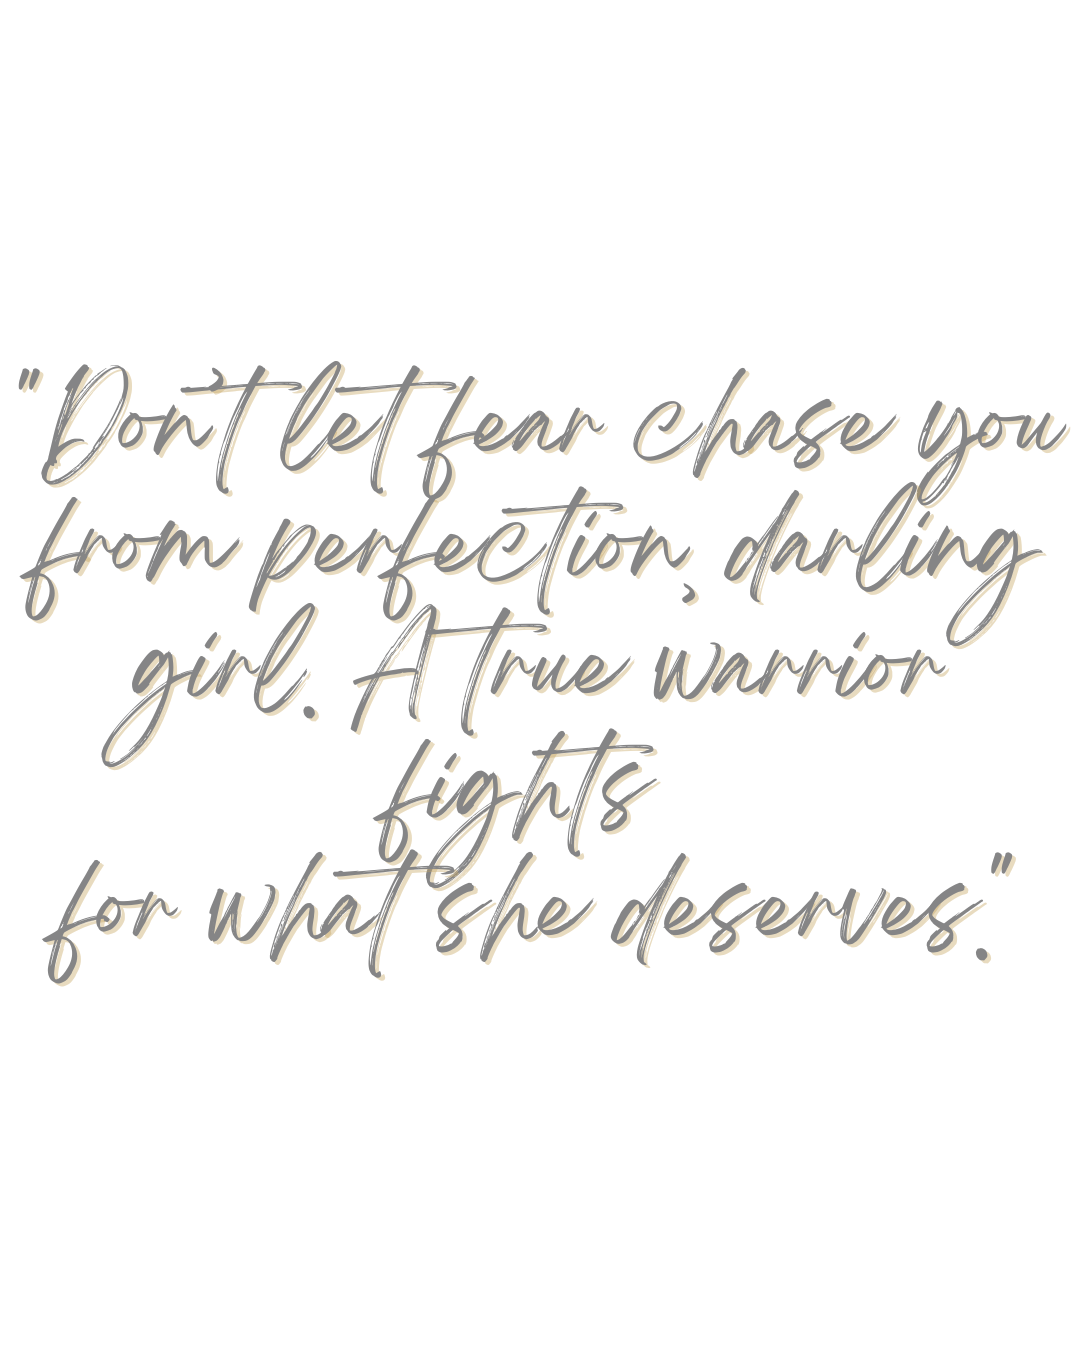 "Don't let fear chase you
from perfection, darling
girl. A true warrior
fights
for what she deserves."